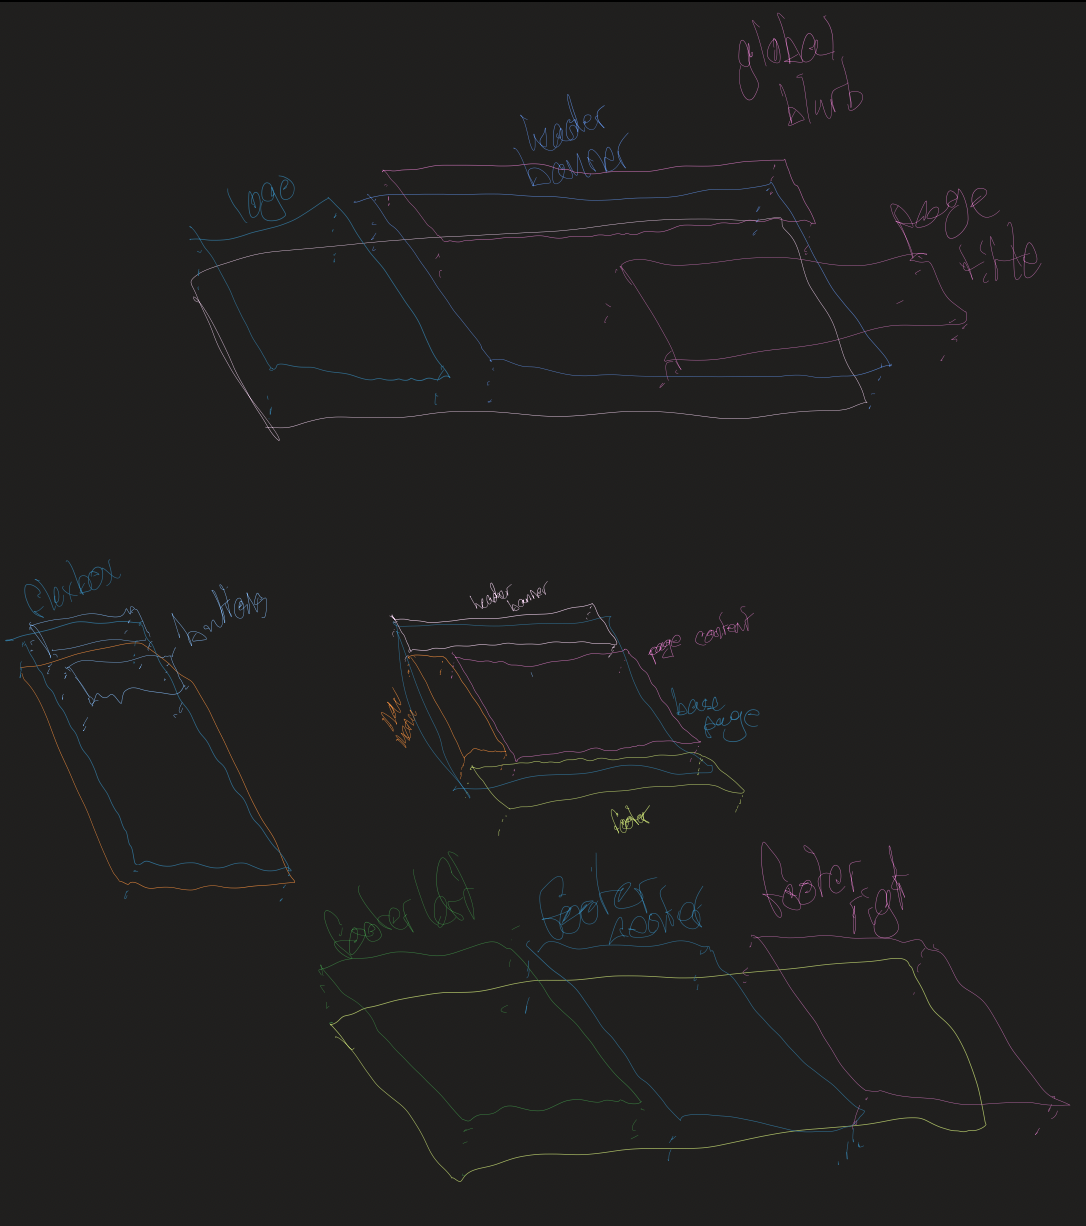 global
blurb
header
banner
logo
page
title
flexbox
buttons
header
banner
page content
nav
menu
base
page
footer
footer left
footer
center
footer
right